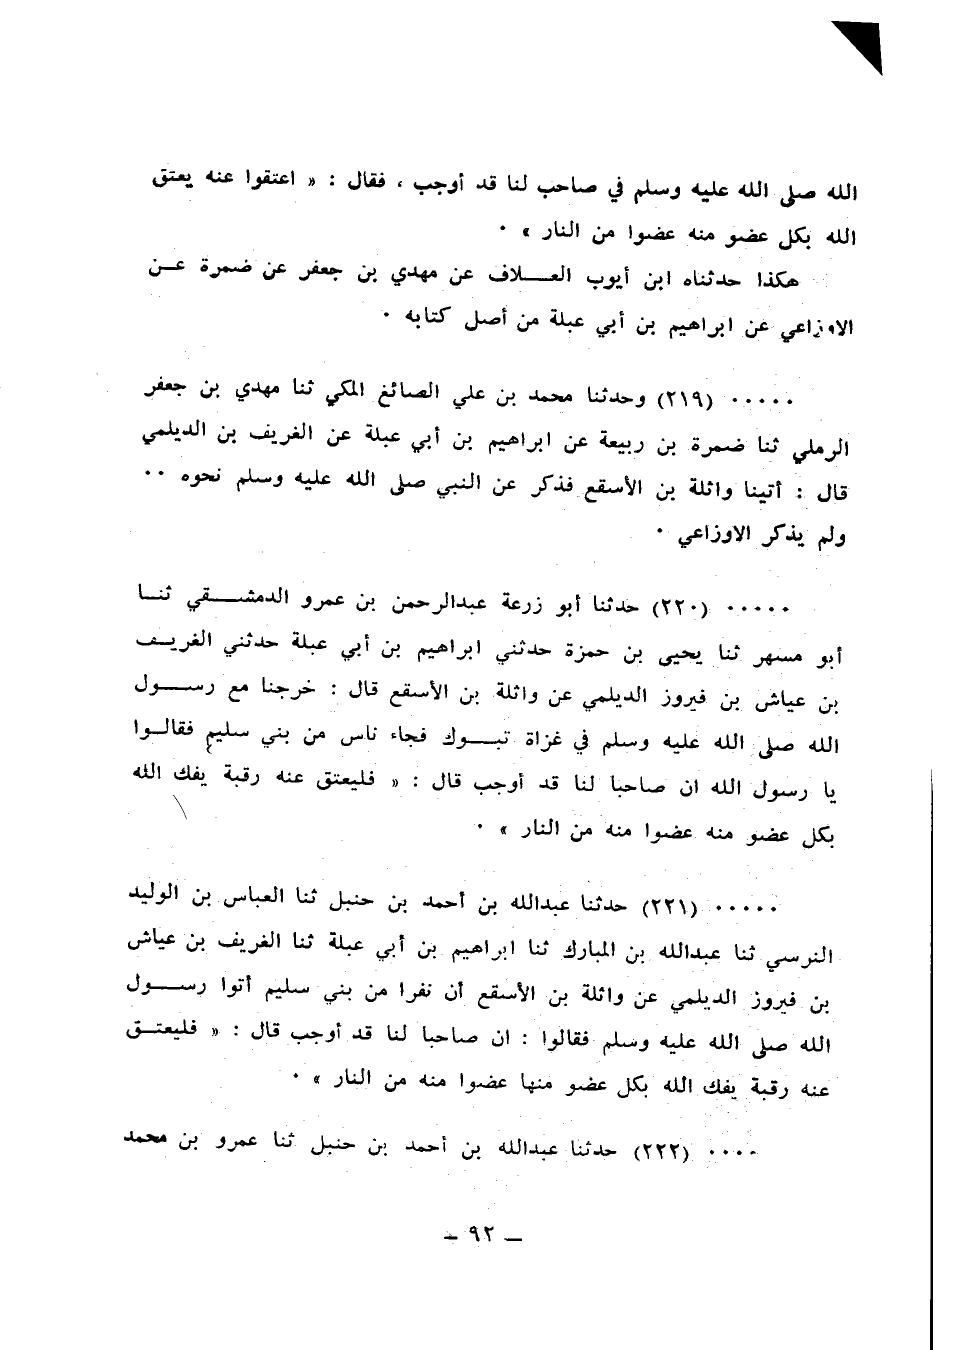 الله صلى الله عليه وسلم في صاحب لنا قد أوجب ، فقال : « اعتقوا عنه يعتق
الله بكل عضو منه عضوا من النار » ·
هكذا حدثناه ابن أيوب العـــلاف عن مهدي بن جعفر عن ضمرة عــن
الاوزاعي عن ابراهيم بن أبي عبلة من أصل كتابه ·
····· (٢١٩) وحدثنا محمد بن علي الصائغ المكي ثنا مهدي بن جعفر
الرملي ثنا ضمرة بن ربيعة عن ابراهيم بن أبي عبلة عن الغريف بن الديلمي
قال : أتينا واثلة بن الأسقع فذكر عن النبي صلى الله عليه وسلم نحوه ··
ولم يذكر الاوزاعي ·
····· (٢٢٠) حدثنا أبو زرعة عبدالرحمن بن عمرو الدمشـــقي ثنــا
أبو مسهر ثنا يحيى بن حمزة حدثني ابراهيم بن أبي عبلة حدثني الغريــف
بن عياش بن فيروز الديلمي عن واثلة بن الأسقع قال : خرجنا مع رســـول
الله صلى الله عليه وسلم في غزاة تبـــوك فجاء ناس من بني سليم فقالــوا
يا رسول الله ان صاحبا لنا قد أوجب قال : « فليعتق عنه رقبة يفك الله
بكل عضو منه عضوا منه من النار » ·
····· (٢٢١) حدثنا عبدالله بن أحمد بن حنبل ثنا العباس بن الوليد
النرسي ثنا عبدالله بن المبارك ثنا ابراهيم بن أبي عبلة ثنا الغريف بن عياش
بن فيروز الديلمي عن واثلة بن الأسقع أن نفرا من بني سليم أتوا رســـول
الله صلى الله عليه وسلم فقالوا : ان صاحبا لنا قد أوجب قال : « فليعتــق
عنه رقبة يفك الله بكل عضو منها عضوا منه من النار » ·
···· (٢٢٢) حدثنا عبدالله بن أحمد بن حنبل ثنا عمرو بن محمد
ـ ٩٢ ـ